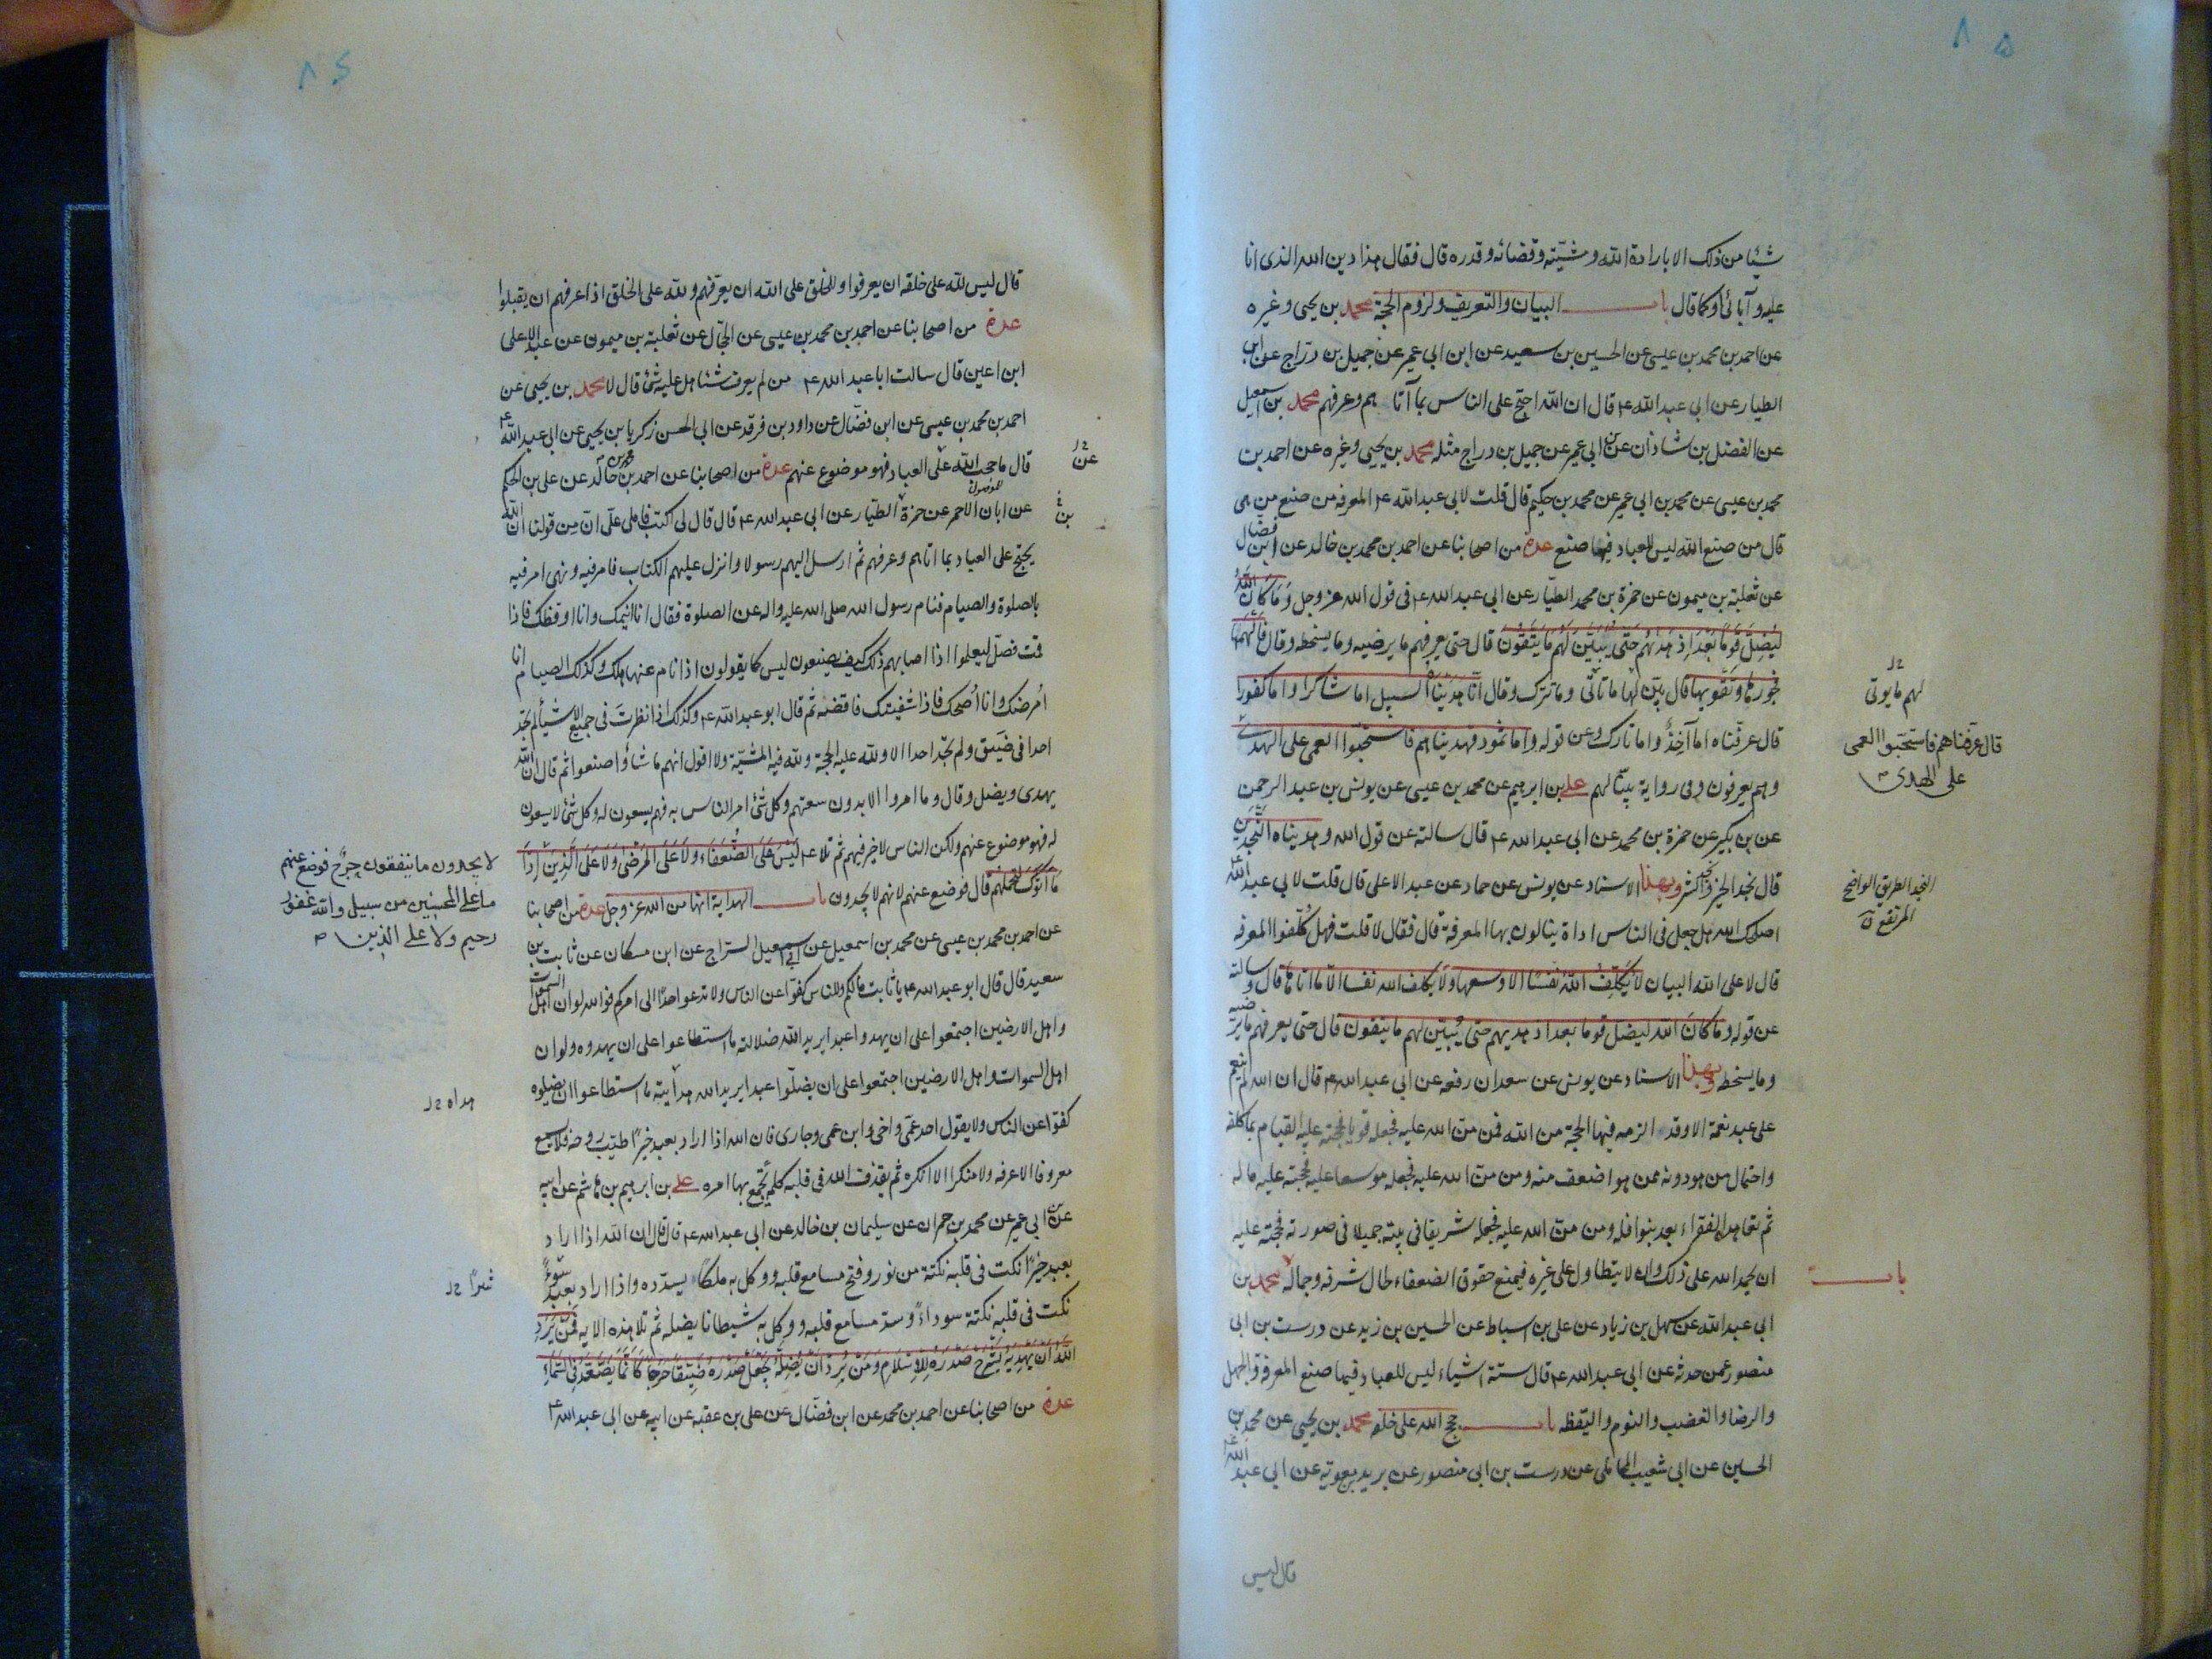 ٨٥
شيئا من ذلك الا بارادة الله ومشيّته وقضائه وقدره قال فقال هذا دين الله الذى انا
عليه و آبائى او كما قال باب البيان والتعريف ولزوم الحجة محمد بن يحيى وغيره
عن احمد بن محمد بن عيسى عن الحسين بن سعيد عن ابن ابى عمير عن جميل بن درّاج عن ابن
الطيار عن ابى عبد الله ع قال ان الله احتج على الناس بما آتا هم وعرفهم محمد بن اسمعيل
عن الفضل بن شاذان عن ابن ابى عمير عن جميل بن دراج مثله محمد بن يحيى وغيره عن احمد بن
محمد بن عيسى عن محمد بن ابى عمير عن محمد بن حكيم قال قلت لابى عبد الله ع المعرفه من صنع من هى
قال من صنع الله ليس للعباد فيها صنع عدة من اصحابنا عن احمد بن محمد بن خالد عن ابن فضال
عن ثعلبة بن ميمون عن حمزة بن محمد الطيّار عن ابى عبد الله ع فى قول الله عز وجل وَمَا كَانَ اللّهُ
لِيُضِلَّ قَوْمًا بَعْدَ اِذْ هَدٰيهُمْ حَتّى يُبَيِّنَ لَهُمْ مَا يَتَّقُونَ قال حتى يعرفهم ما يرضيه وما يسخطه وقال فَاَلْهَمَهَا
فُجُورَهَا وَتَقْويها قال بيّن لها ما تأتى وما تترك وقال انّا هَدَيْنَاهُ السبيل اما شاكرا واما كفورا
قال عرفناه اما آخذٌ واما تارك وعن قوله واما ثمود فهديناهم فاستحبّوا العمى على الهدى
وهم يعرفون وفى رواية بيّنا لهم على بن ابرهيم عن محمد بن عيسى عن يونس بن عبد الرحمن
عن بن بكير عن حمزة بن محمد عن ابى عبد الله ع قال سالته عن قول الله وهديناه النَّجْدَيْنِ
قال نجد الخير ونجد الشر وبهذا الاسناد عن يونس عن حماد عن عبد الاعلى قال قلت لابى عبد الله ع
اصلحك الله هل جعل فى الناس اداة ينالون بها المعرفة قال فقال لا قلت فهل كُلّفوا المعرفه
قال لا على الله البيان لا يُكَلِّفُ اللّهُ نَفْسًا الا وسعها ولا يكلف الله نفسا الّا ما اتاها قال وسالته
عن قوله وما كَانَ اللّه ليضل قوما بعد اذ هديهم حتى يُبيّن لهم ما يتقون قال حتى يعرفهم ما يرضيه
وما يسخطه وبهذا الاسناد عن يونس عن سعدان رفعه عن ابى عبد الله ع قال ان الله لم ينعم
على عبد نعمة الا وقد الزمه فيها الحجة من الله فمن منّ الله عليه فجعله قويا فحجته عليه القيام بما كلفه
واحتمال من هو دونه ممن هو اضعف منه ومن منّ الله عليه فجعله موسعا عليه فحجته عليه ماله
ثم تعاهد الفقراء بعد بنوافله ومن منّ الله عليه فجعله شريفا فى بيته جميلا فى صورته فحجته عليه
ان يحمد الله على ذلك وان لا يتطاول على غيره فيمنع حقوق الضعفاء لحال شرفه وجماله محمد بن
ابى عبد الله عن سهل بن زياد عن على بن اسباط عن الحسين بن زيد عن درست بن ابى
منصور عمن حدثه عن ابى عبد الله ع قال ستة اشياء ليس للعباد فيها صنع المعرفة والجهل
والرضا والغضب والنوم واليقظه باب حجج الله على خلقه محمد بن يحيى عن محمد بن
الحسين عن ابى شعيب المحاملى عن درست بن ابى منصور عن بريد بن معوية عن ابى عبد الله ع
قال ليس
لهم ما يوتى
قال عرفناهم فاستحبّوا العمى
على الهدى
النجد الطريق الواضح
المرتفع ق
باب
٨٦
قال ليس للّه على خلقه ان يعرفوا وللخلق على الله ان يعرّفهم ولله على الخلق اذا عرفهم ان يقبلوا
عدة من اصحابنا عن احمد بن محمد بن عيسى عن الحجّال عن ثعلبة بن ميمون عن عبد الاعلى
ابن اعين قال سالت ابا عبد الله ع من لم يعرف شيئا هل عليه شئ قال لا محمد بن يحيى عن
احمد بن محمد بن عيسى عن ابن فضّال عن داود بن فرقد عن ابى الحسن زكريا بن يحيى عن ابى عبد الله ع
قال ما حجب الله على العباد فهو موضوع عنهم عدة من اصحابنا عن احمد بن محمد بن خالد عن على بن الحكم
عن ابان الاحمر عن حمزة الطيّار عن ابى عبد الله ع قال قال لى اكتب فاملى علىّ انّ مِن قولنا ان الله
يحتج على العباد بما اتاهم وعرفهم ثم ارسل اليهم رسولا وانزل عليهم الكتاب فامر فيه ونهى امر فيه
بالصلوة والصيام فنام رسول الله صلى الله عليه واله عن الصلوة فقال انا انيمك وانا اوقظك فاذا
قمت فصلّ ليعلموا اذا اصابهم ذلك كيف يصنعون ليس كما يقولون اذا نام عنها هلك وكذلك الصيام انا
اُمرضك وانا اُصحك فاذا شفيتك فاقضه ثم قال ابو عبد الله ع وكذلك اذا نظرتَ فى جميع الاشياء لم تجد
احدا فى ضيق ولم تجد احدا الا ولله عليه الحجة ولله فيه المشيّة ولا اقول انهم ما شاؤا صنعوا ثم قال ان الله
يهدى ويضل وقال وما امروا الا بدون سعتهم وكل شئ امر الناس به فهم يسعون له وكل شئ لا يسعون
له فهو موضوع عنهم ولكن الناس لا خير فيهم ثم تلا ع لَيْسَ عَلَى الضُّعَفَاءِ وَلَا عَلَى الْمَرْضٰى وَلَا عَلَى الَّذِينَ اِذَا
مَا اَتَوْكَ لِتَحْمِلَهُمْ قال فوضع عنهم لانهم لا يجدون باب الهداية انها من الله عز وجل عدة من اصحابنا
عن احمد بن محمد بن عيسى عن محمد بن اسمعيل عن اسمعيل السراج عن ابن مسكان عن ثابت بن
سعيد قال قال ابو عبد الله ع يا ثابت مالكم وللناس كفوّا عن الناس ولا تدعوا احدًا الى امركم فوالله لو ان اهل السموات
واهل الارضين اجتمعوا على ان يهدوا عبدا يريد الله ضلالته ما استطاعوا على ان يهدوه ولو ان
اهل السموات واهل الارضين اجتمعوا على ان يضلّوا عبدا يريد الله هدايته ما استطاعوا ان يضلوه
كفوّا عن الناس ولا يقول احد عمّى واخى وابن عمى وجارى فان الله اذا اراد بعبد خيرًا طيّب روحه فلا يسمع
معروفا الا عرفه ولا منكرا الا انكره ثم يقذف الله فى قلبه كلمة يجمع بها امره على بن ابرهيم بن هاشم عن ابيه
عن ابن ابى عمير عن محمد بن حمران عن سليمان بن خالد عن ابى عبد الله ع قال قال ان الله اذا اراد
بعبد خيرًا نكت فى قلبه نكتة من نور وفتح مسامع قلبه ووكل به ملكًا يسدّده واذا اراد بعبد سوءً
نكت فى قلبه نكتة سوداءً وسدّ مسامع قلبه ووكل به شيطانا يضله ثم تلا هذه الايه فَمَن يُرِدِ
اللّهُ اَنْ يَهْدِيَهُ يَشْرَحْ صَدْرَهُ لِلْاِسْلَامِ وَمَنْ يُرِدْ اَنْ يُضِلَّهُ يَجْعَلْ صَدْرَهُ ضَيِّقًا حَرَجًا كَاَنَّمَا يَصَّعَّدُ فِى السَّمَاءِ
عدة من اصحابنا عن احمد بن محمد عن ابن فضّال عن على بن عقبه عن ابيه عن ابى عبد الله ع
عن
بن
لا يجدون ما ينفقون حرج فوضع عنهم
ما على المحسنين من سبيل والله غفور
رحيم ولا على الذين
هداه
شرًا